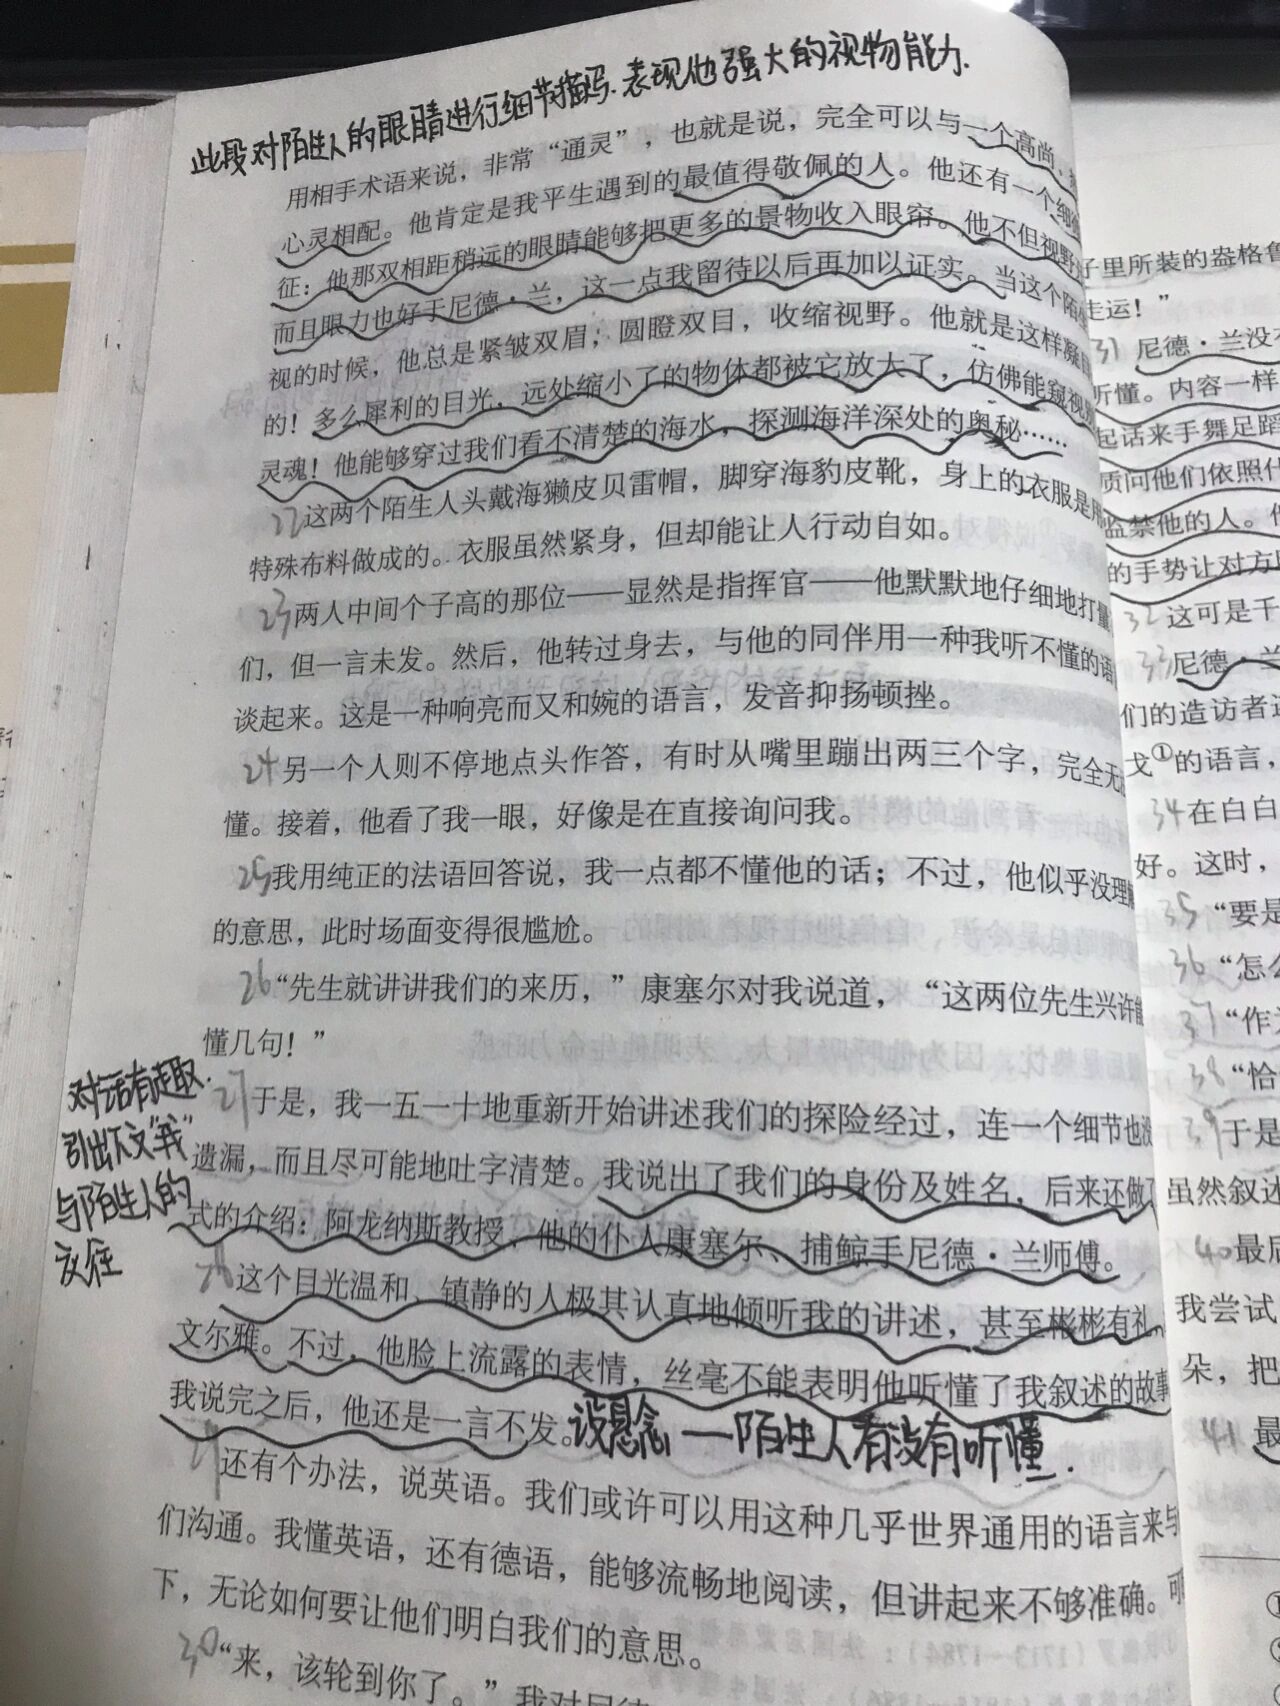 此段对陌生人的眼睛进行细节描写.表现他强大的视物能力.
用相手术语来说，非常“通灵”，也就是说，完全可以与一个高尚、
心灵相配。他肯定是我平生遇到的最值得敬佩的人。他还有一个细
征：他那双相距稍远的眼睛能够把更多的景物收入眼帘。他不但视野
而且眼力也好于尼德·兰，这一点我留待以后再加以证实。当这个陌
视的时候，他总是紧皱双眉；圆瞪双目，收缩视野。他就是这样凝
的！多么犀利的目光，远处缩小了的物体都被它放大了，仿佛能窥视
灵魂！他能够穿过我们看不清楚的海水，探测海洋深处的奥秘……
22这两个陌生人头戴海獭皮贝雷帽，脚穿海豹皮靴，身上的衣服是用
特殊布料做成的。衣服虽然紧身，但却能让人行动自如。
23两人中间个子高的那位——显然是指挥官——他默默地仔细地打量
们，但一言未发。然后，他转过身去，与他的同伴用一种我听不懂的语
谈起来。这是一种响亮而又和婉的语言，发音抑扬顿挫。
24另一个人则不停地点头作答，有时从嘴里蹦出两三个字，完全无
懂。接着，他看了我一眼，好像是在直接询问我。
25我用纯正的法语回答说，我一点都不懂他的话；不过，他似乎没理
的意思，此时场面变得很尴尬。
26“先生就讲讲我们的来历，”康塞尔对我说道，“这两位先生兴许能
懂几句！”
对话有趣.
引出下文“我”
与陌生人的
交往
27于是，我一五一十地重新开始讲述我们的探险经过，连一个细节也没
遗漏，而且尽可能地吐字清楚。我说出了我们的身份及姓名，后来还做了
式的介绍：阿龙纳斯教授、他的仆人康塞尔、捕鲸手尼德·兰师傅。
28这个目光温和、镇静的人极其认真地倾听我的讲述，甚至彬彬有礼、
文尔雅。不过，他脸上流露的表情，丝毫不能表明他听懂了我叙述的故事
我说完之后，他还是一言不发。设悬念—陌生人有没有听懂.
29还有个办法，说英语。我们或许可以用这种几乎世界通用的语言来与
们沟通。我懂英语，还有德语，能够流畅地阅读，但讲起来不够准确。可
下，无论如何要让他们明白我们的意思。
30“来，该轮到你了。”我对
子里所装的盎格鲁
走运！”
31尼德·兰没
听懂。内容一样
起话来手舞足蹈
质问他们依照什
监禁他的人。
的手势让对方
32这可是千
33尼德·兰
们的造访者
戈①的语言，
34在白白
好。这时，
35“要是
36“怎么
37“作
38“恰
39于是
虽然叙述
40最后
我尝试
朵，把
41最